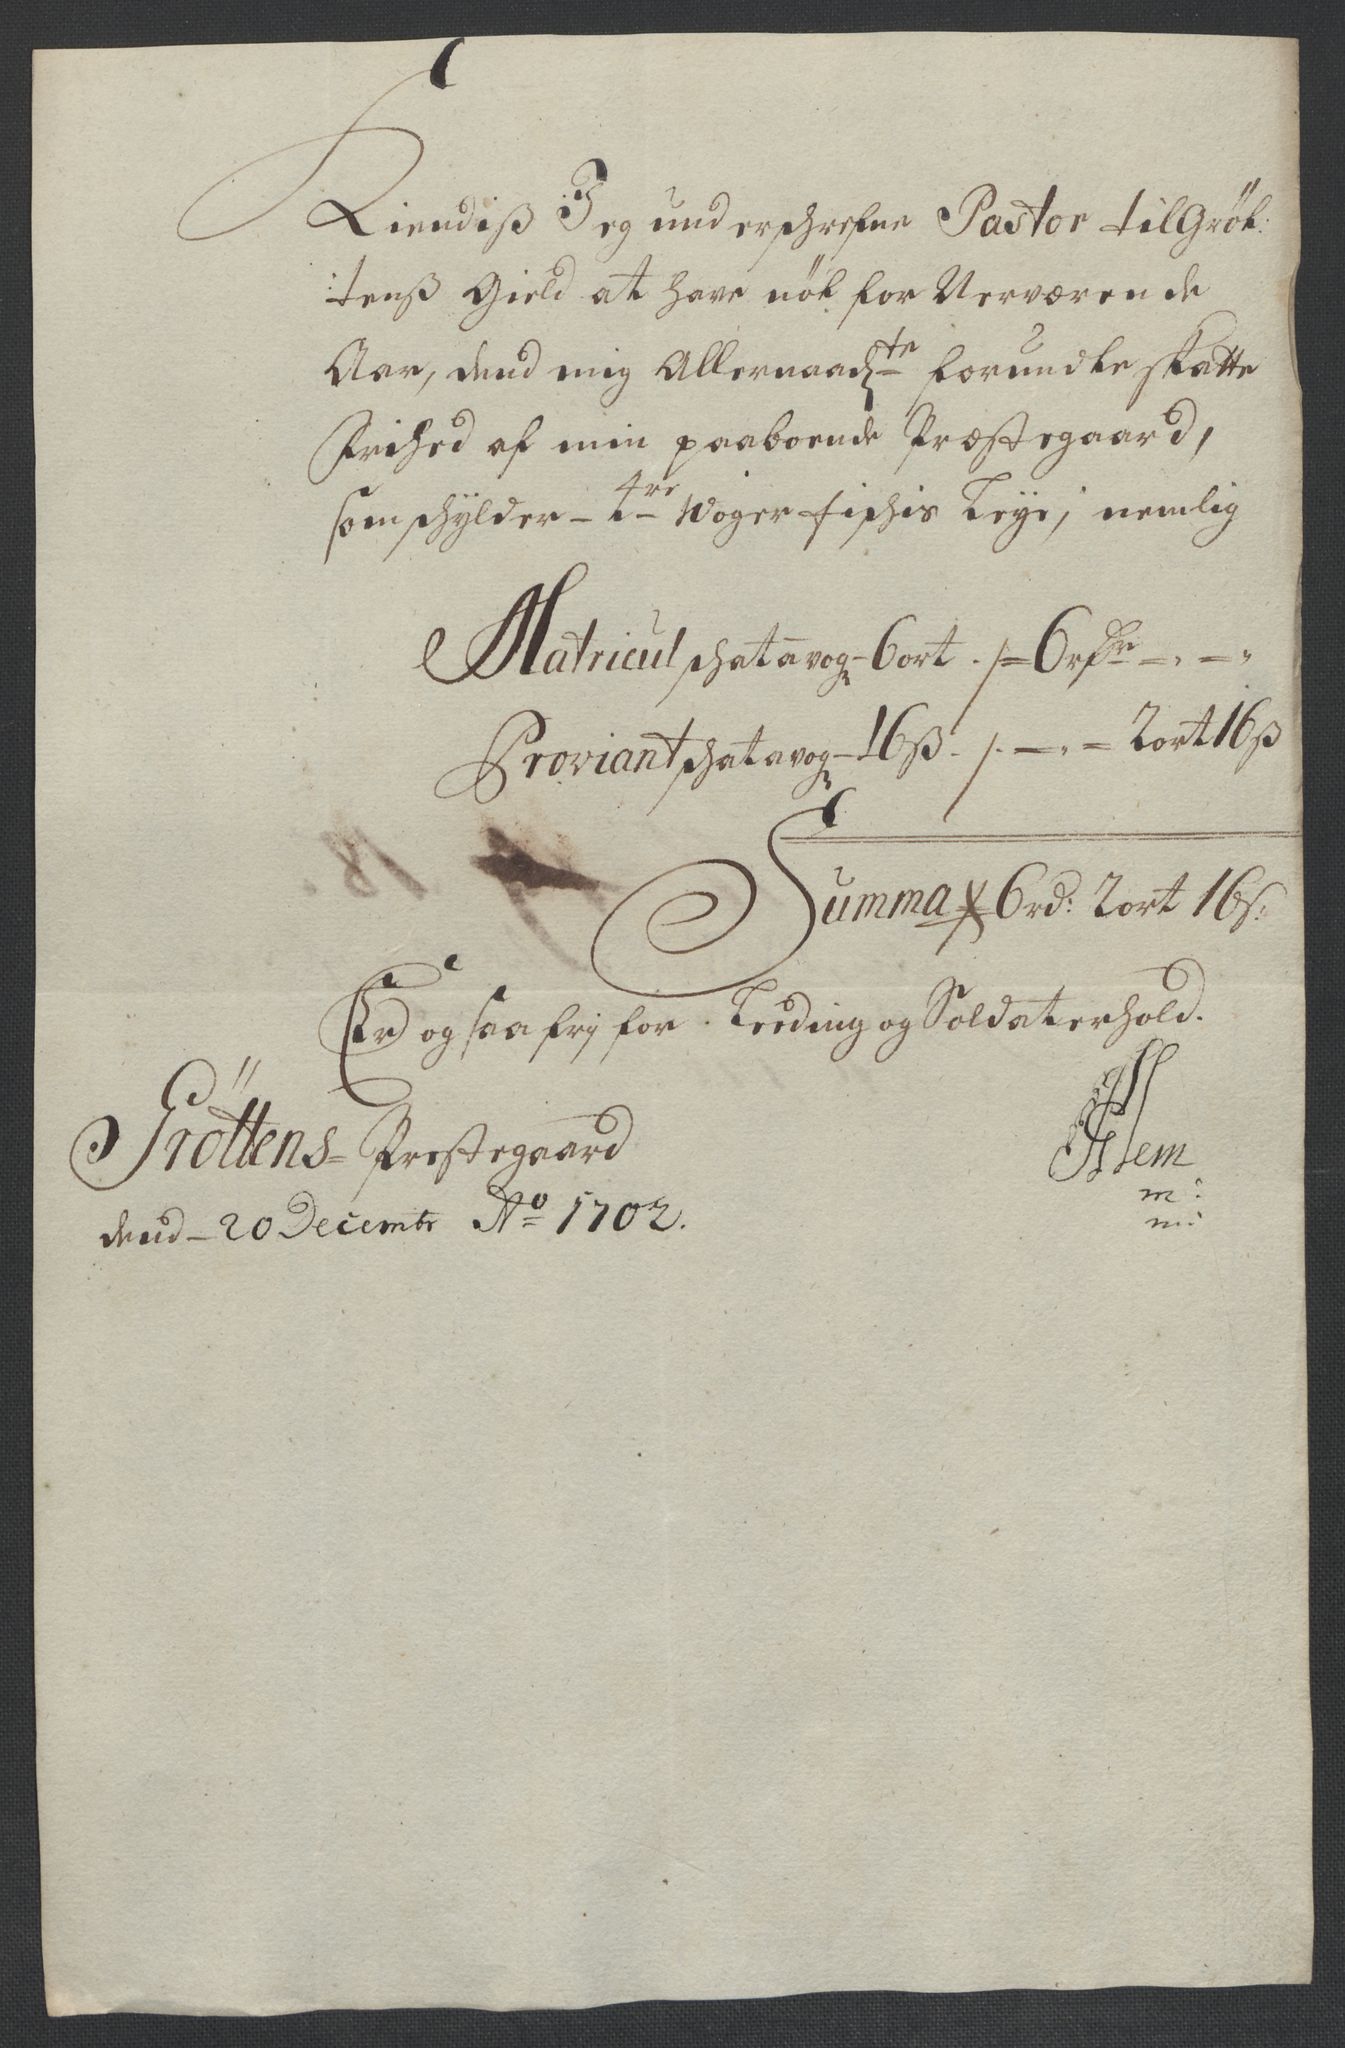 Kiendiß Jeg underschrefne Pastor til Gröt:
:tenß Gield at have nöt for Nerværende
Aar, dend mig Allernaadste forundte skatte
Frihed af min paaboende Præstegaard,
som schylder - tre Woger fischis Leye, nemlig
Matricul schat a vog - 6 ort ./= 6 rdlr
Proviant schat a vog - 16 ß ./. 2 ort 16 ß
Summa 6 rd: 2 ort 16 ß:
Er og saa frj for Leeding og Soldaterhold.
Gröttens= Prestegaard
dend - 20 Decembr Ao 1702.
m:
m: